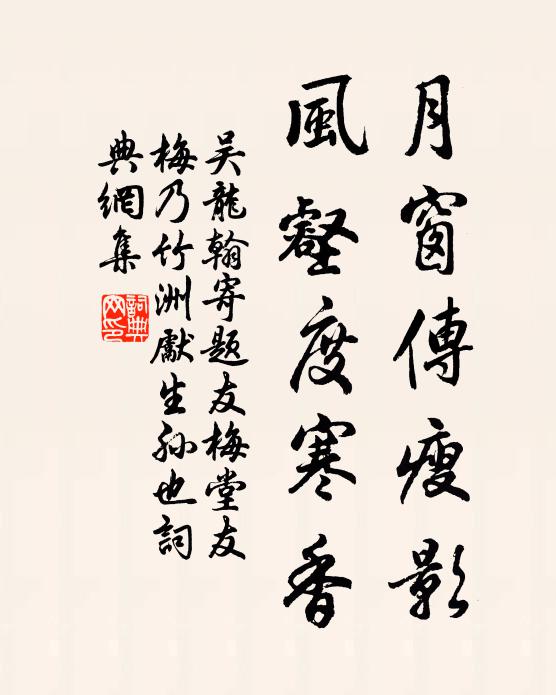 月窗傳瘦影
風壑度寒香
吴龍翰寄题友梅堂友
梅乃竹洲獻生孙也詞
典網集
詞典
网印